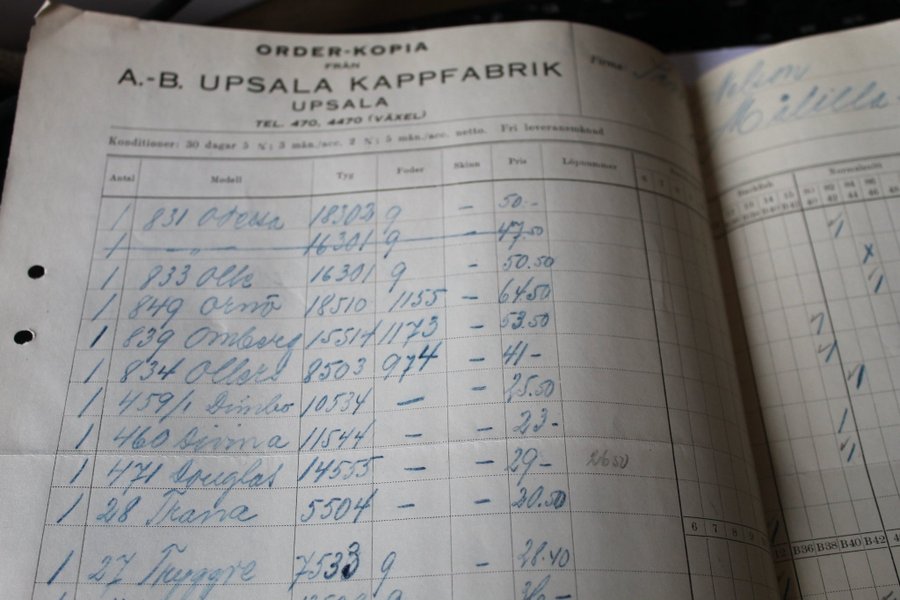 ORDER-KOPIA
FRÅN
A.-B. UPSALA KAPPFABRIK
UPSALA
TEL. 470, 4470 (VÄXEL)
Firma:
Målilla
Konditioner: 30 dagar 5 %; 3 mån./acc. 2 %; 5 mån./acc. netto. Fri leveranskund
Antal Modell Tyg Foder Skinn Pris Löpnummer
1 831 Odessa 18303 g — 50.-
1 — „ — 16301 g — 47.50
1 833 16301 g - 50.50
1 849 Ornö 18510 1155 - 64.50
1 839 Omberg 15514 1173 - 53.50
1 834 8503 974 - 41-
1 459/1 Dimbo 10534 — - 25.50
1 460 Divina 11544 — - 23-
1 471 Douglas 14555 — - 29- 2650
1 28 Trana 5504 — - 20.50
6 7 8 9
B36 B38 B40 B42
1 27 7533 g - 28.40